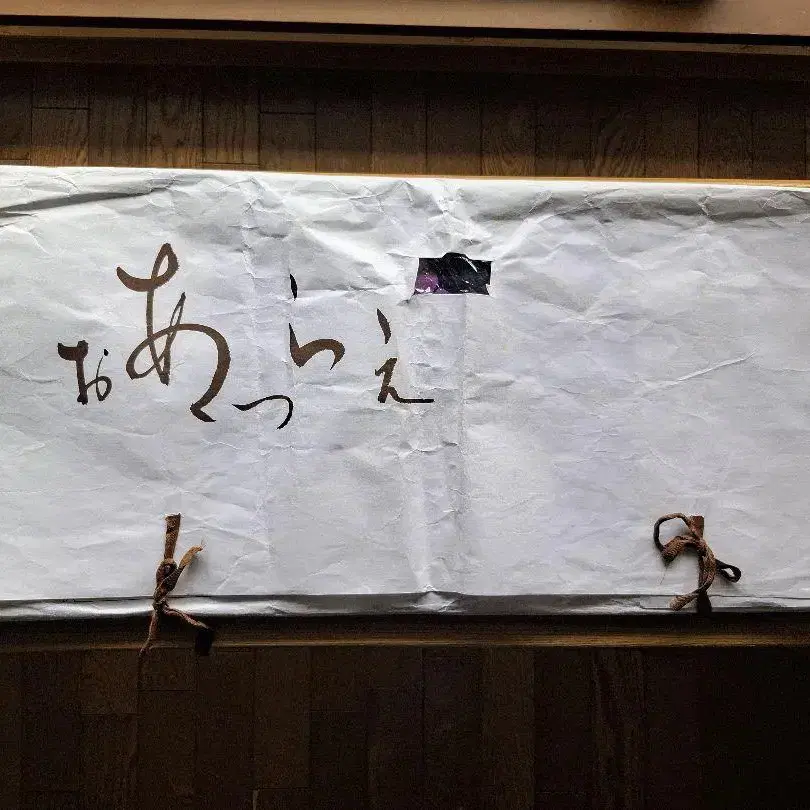 おあつらえ